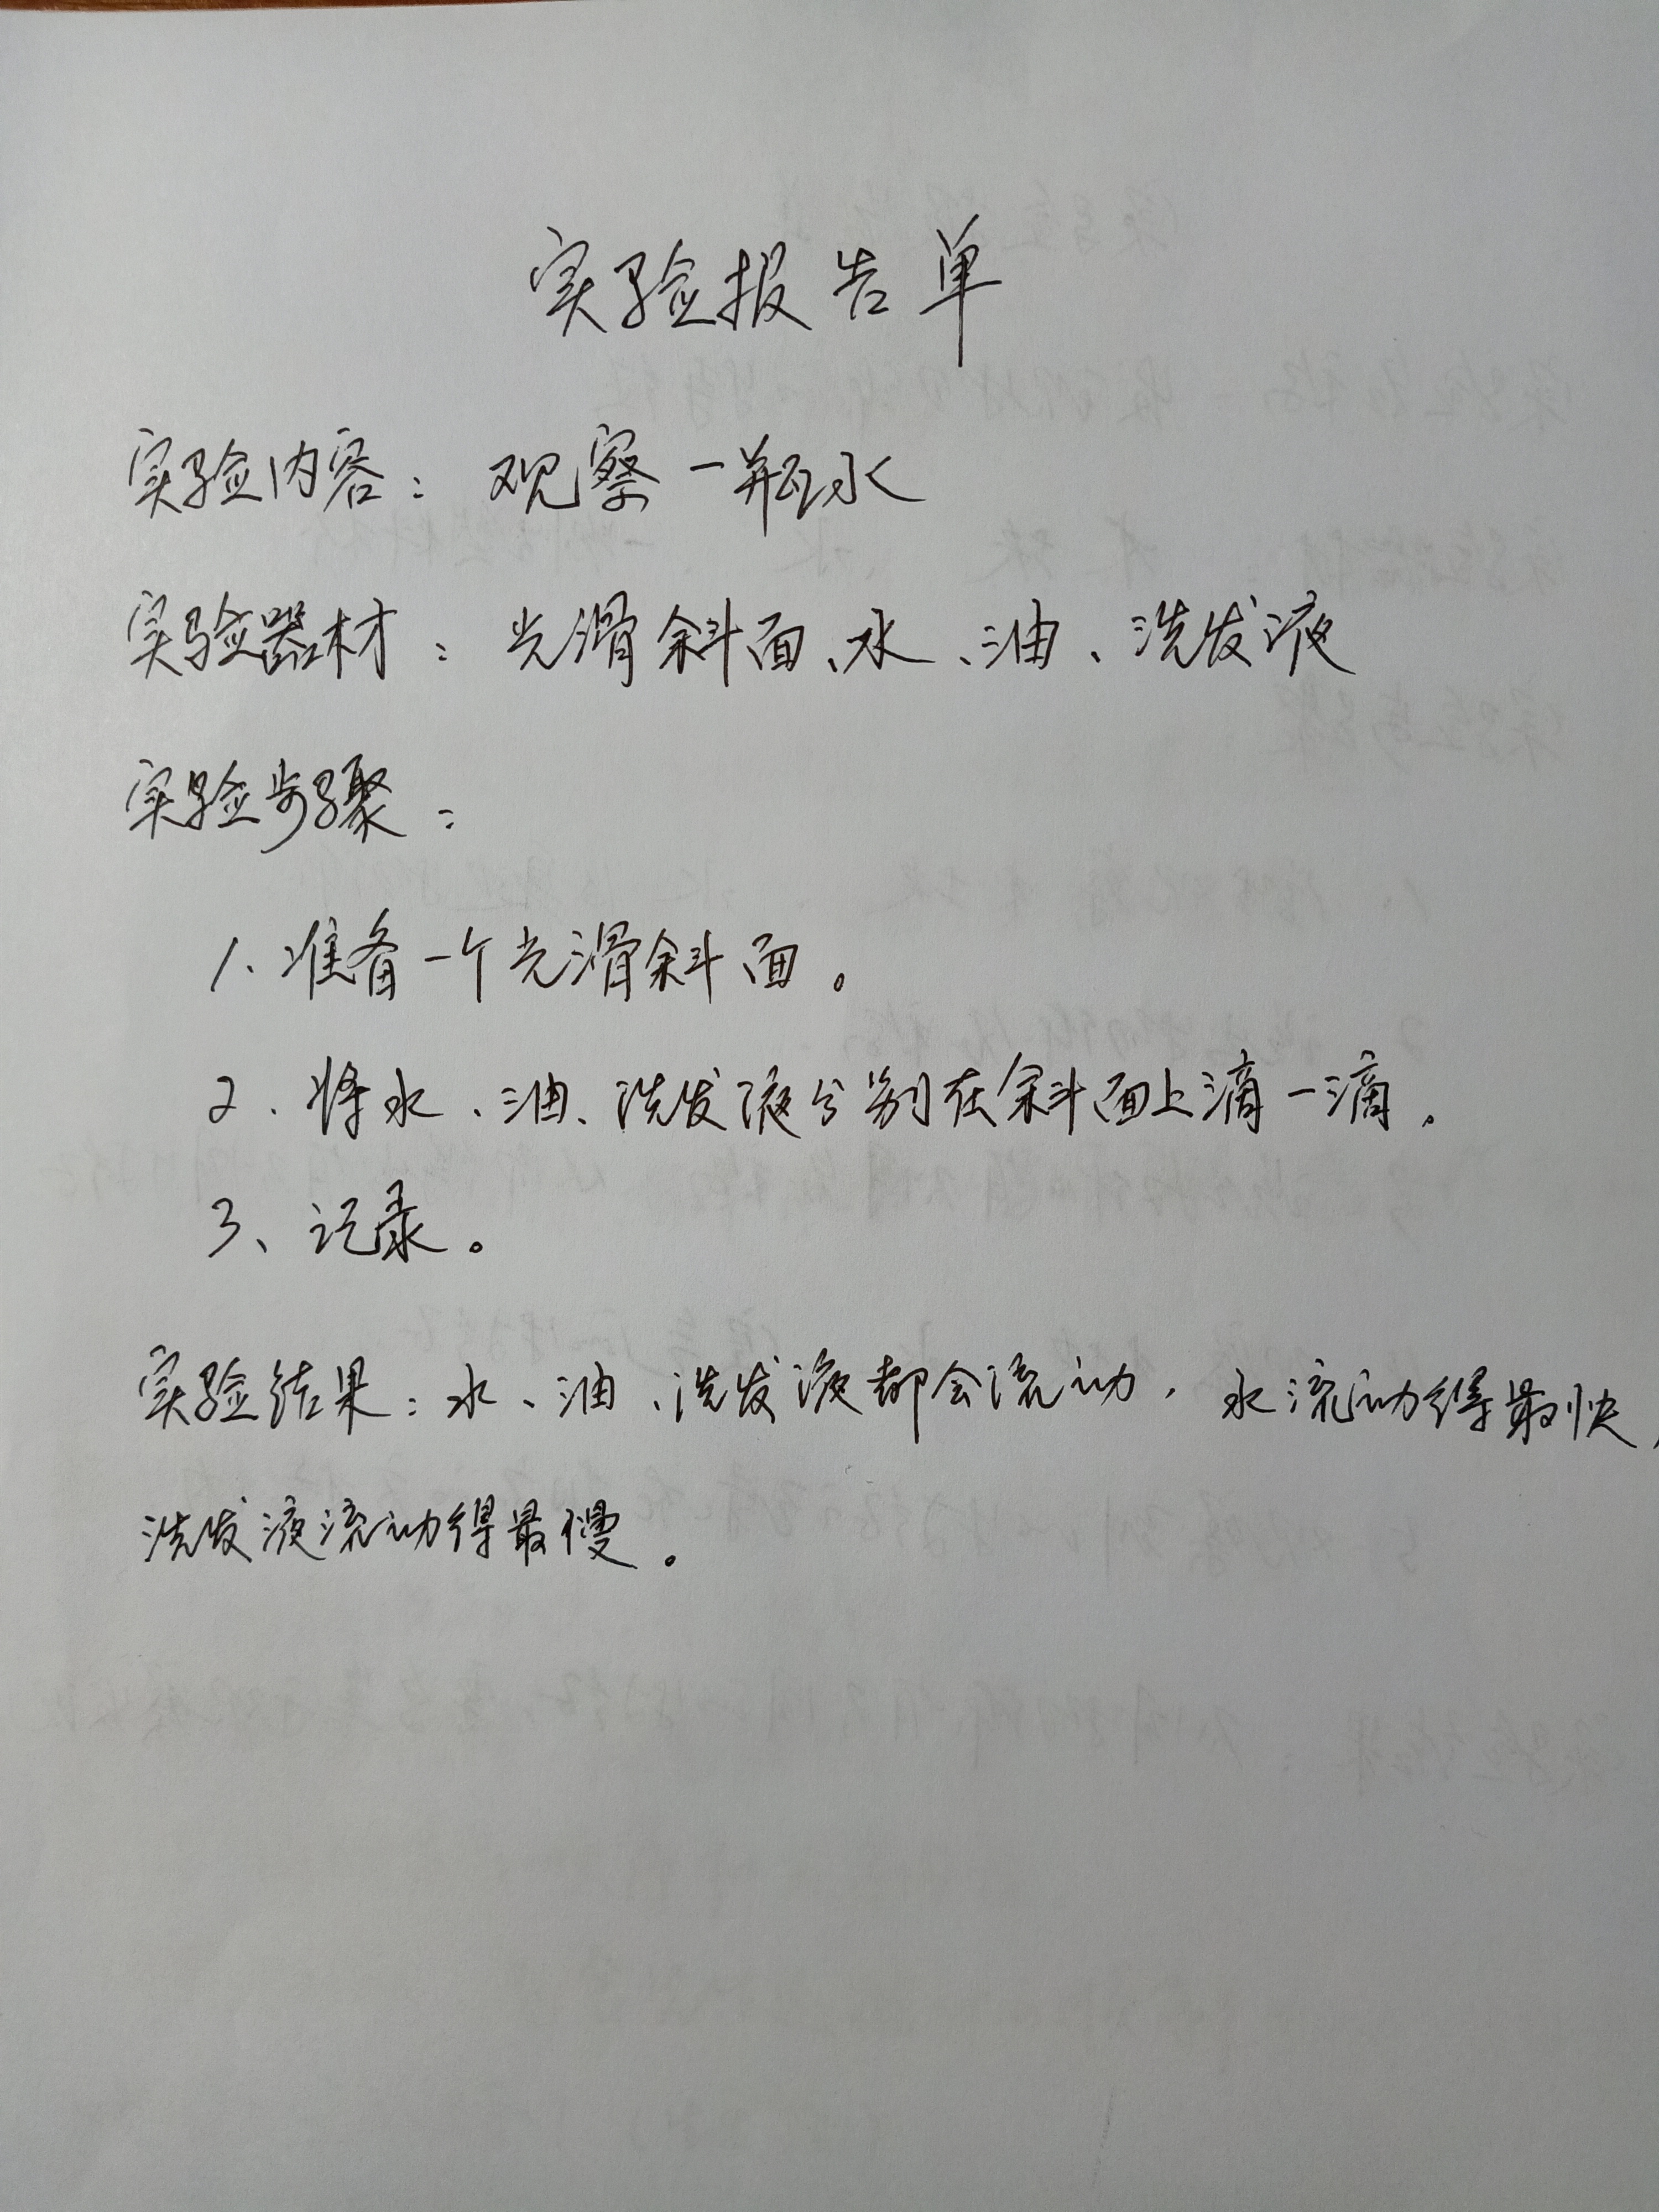 实验报告单
实验内容：观察一瓶水
实验器材：光滑斜面、水、油、洗发液
实验步骤：
1、准备一个光滑斜面。
2、将水、油、洗发液分别在斜面上滴一滴。
3、记录。
实验结果：水、油、洗发液都会流动，水流动得最快，
洗发液流动得最慢。